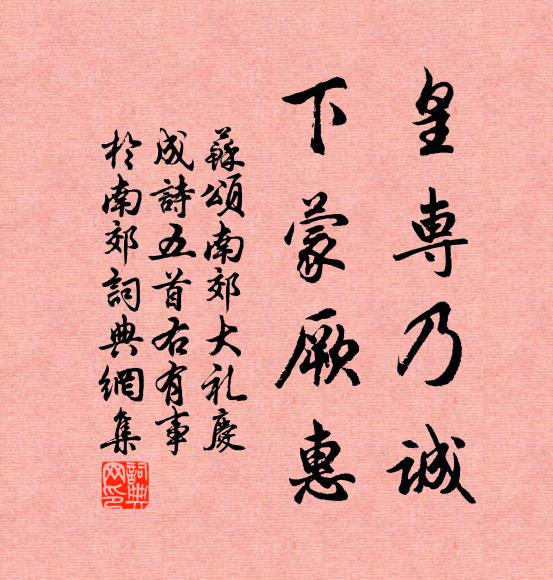 皇專乃誠
下蒙厥惠
蘇頌南郊大礼慶
成詩五首右有事
於南郊詞典網集
詞典
网印